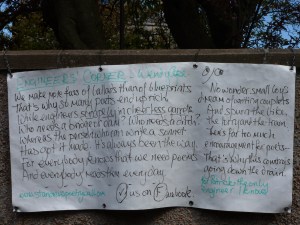 ENGINEERS' CORNER: Wendy Cope
We make more fuss of ballads than of blueprints
That's why so many poets end up rich,
While engineers scrape by in cheerless garrets.
Who needs a bridge or dam? Who needs a ditch?
Whereas the person who can write a sonnet
Has got it made. It's always been the way,
For everybody knows that we need poems
And everybody reads them every day.
us on Facebook
No wonder small boys
dream of writing couplets
And spurn the bike,
the train
There's far too much
encouragement for poets–
That's why this country's
going down the drain.